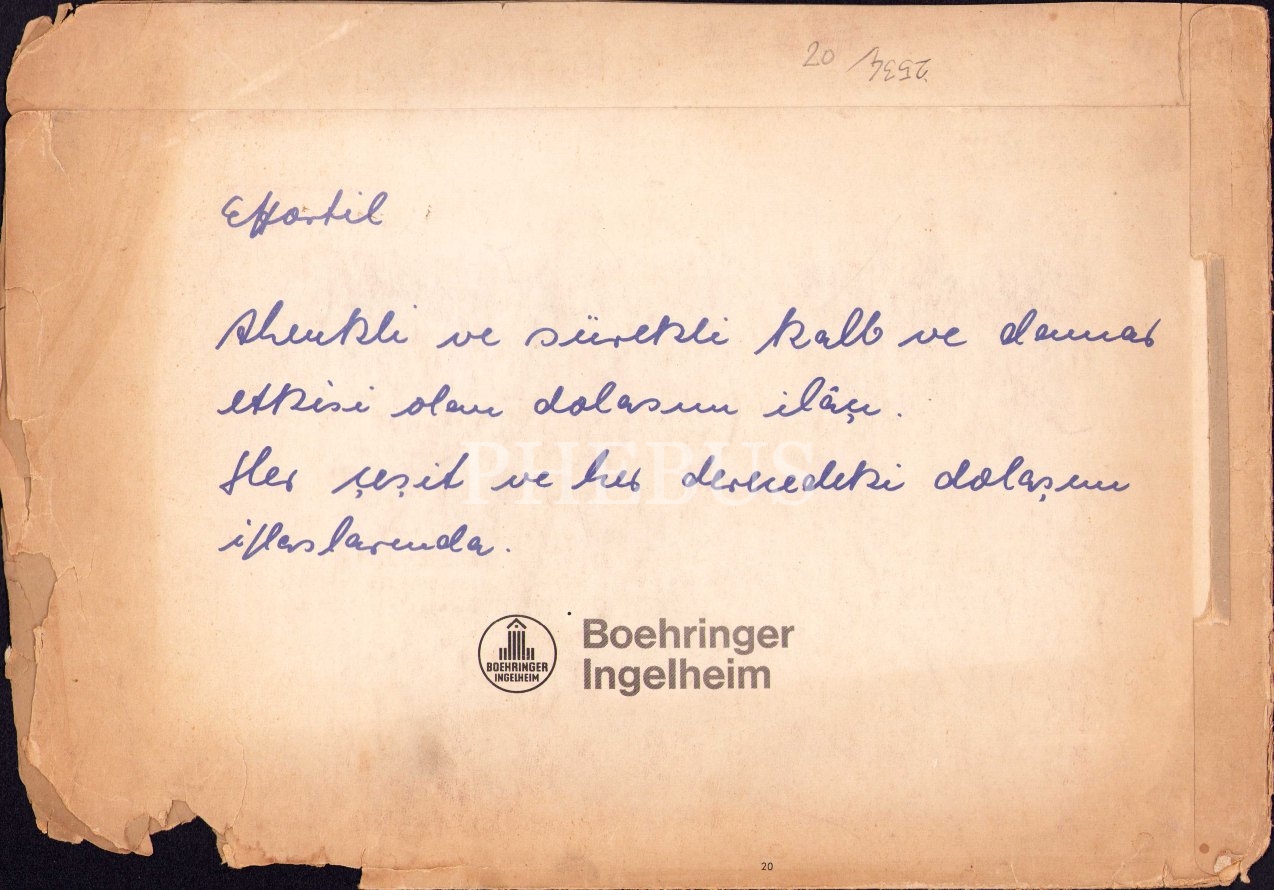 20 2534
Effortil
Ahenkli ve sürekli kalb ve damar
etkisi olan dolasım ilâçı.
Her çeşit ve her derecedeki dolaşım
iflaslarında.
PHEBUS
BOEHRINGER
INGELHEIM
Boehringer
Ingelheim
20